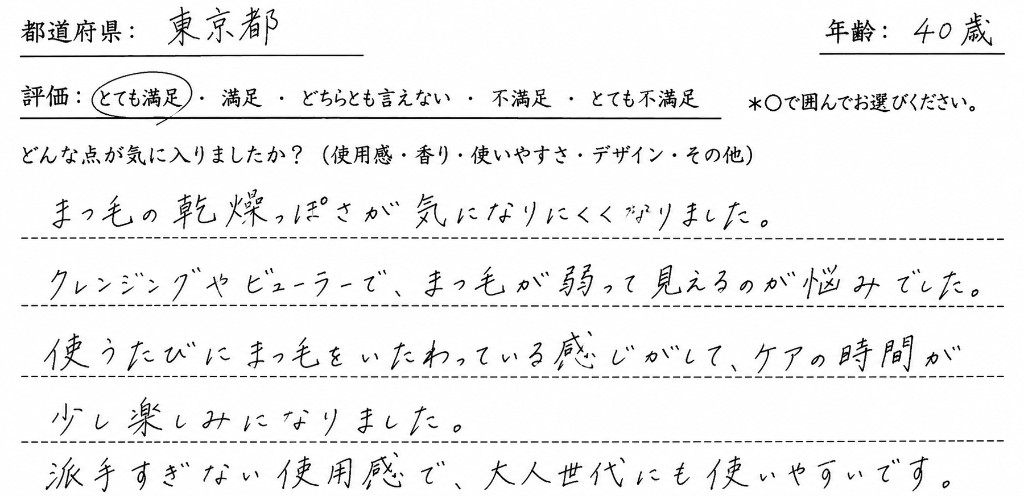 都道府県： 東京都 年齢： 40歳
評価： とても満足 ・ 満足 ・ どちらとも言えない ・ 不満足 ・ とても不満足 ＊○で囲んでお選びください。
どんな点が気に入りましたか？（使用感・香り・使いやすさ・デザイン・その他）
まつ毛の乾燥っぽさが気になりにくくなりました。
クレンジングやビューラーで、まつ毛が弱って見えるのが悩みでした。
使うたびにまつ毛をいたわっている感じがして、ケアの時間が
少し楽しみになりました。
派手すぎない使用感で、大人世代にも使いやすいです。